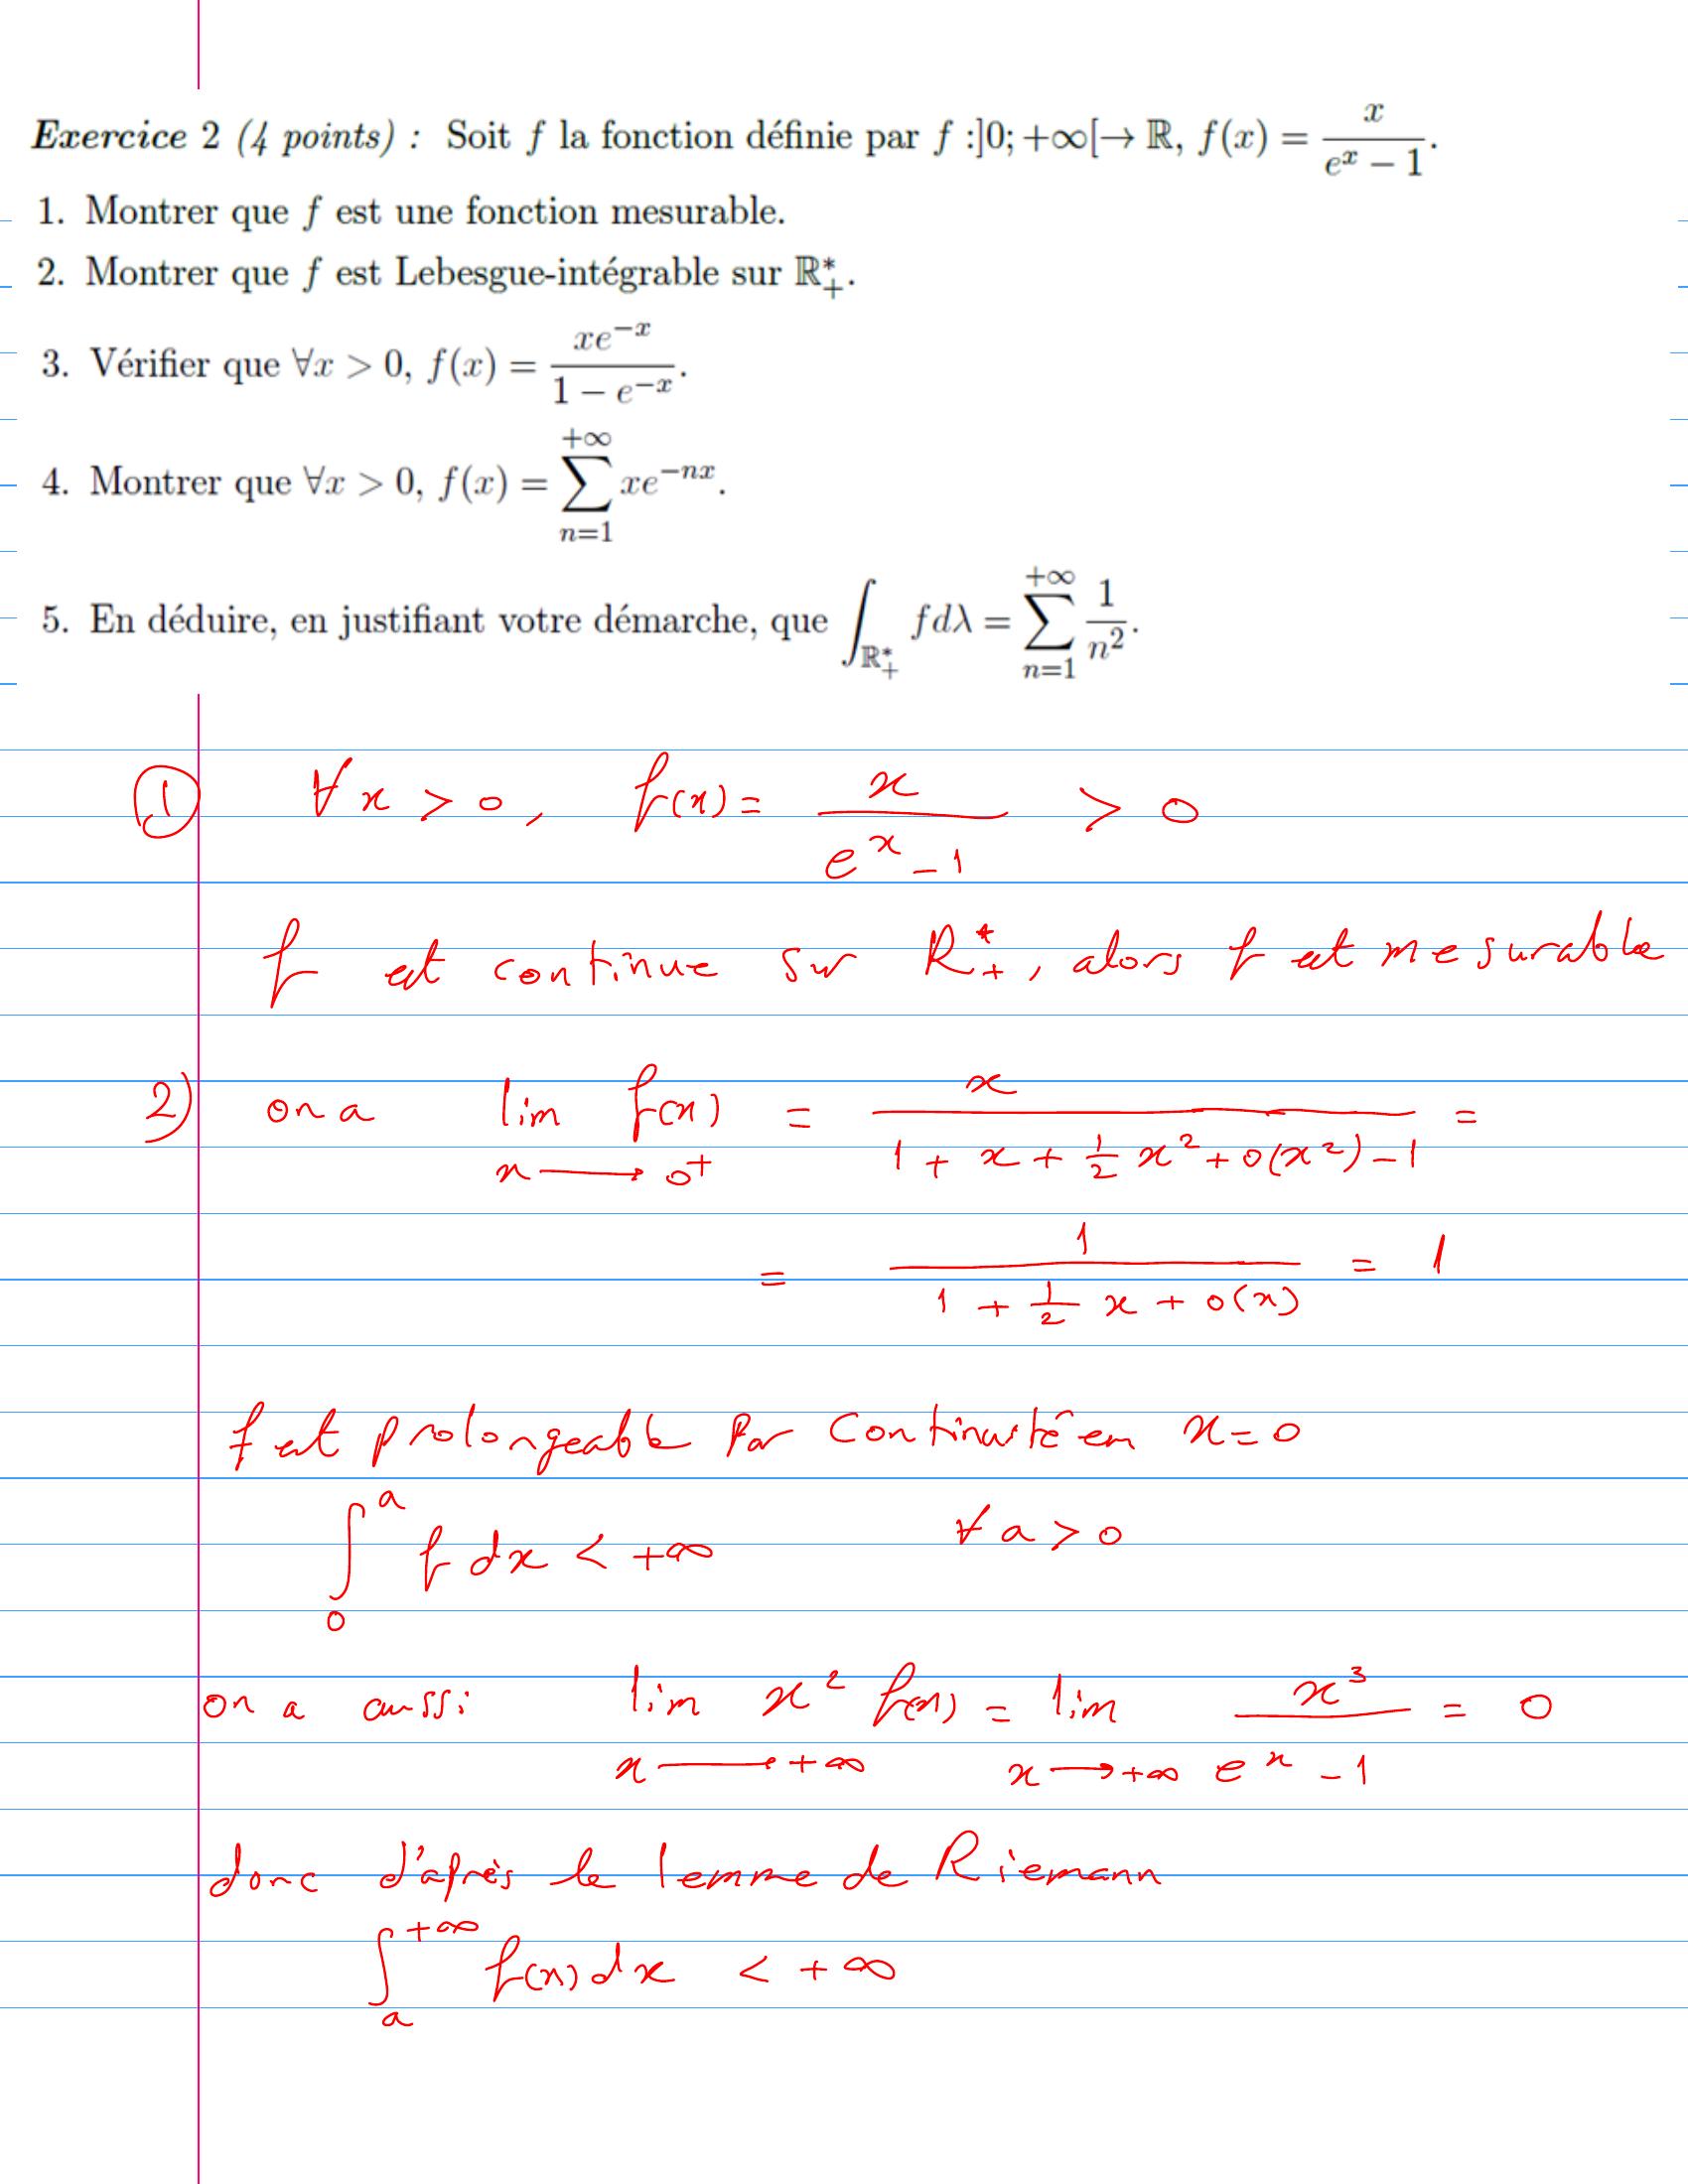 Exercice 2 (4 points) : Soit f la fonction définie par f :]0; +∞[→ ℝ, f(x) = x / (e^x − 1).
1. Montrer que f est une fonction mesurable.
2. Montrer que f est Lebesgue-intégrable sur ℝ₊*.
3. Vérifier que ∀x > 0, f(x) = xe^{−x} / (1 − e^{−x}).
4. Montrer que ∀x > 0, f(x) = ∑_{n=1}^{+∞} xe^{−nx}.
5. En déduire, en justifiant votre démarche, que ∫_{ℝ₊*} fdλ = ∑_{n=1}^{+∞} 1/n².
① ∀x > 0, f(x) = x / (e^x − 1) > 0
f est continue sur ℝ₊*, alors f est mesurable
2) on a lim_{x→0⁺} f(x) = x / (1 + x + ½x² + o(x²) − 1) =
= 1 / (1 + ½x + o(x)) = 1
f est prolongeable par continuité en x = 0
∫_0^a f dx < +∞ ∀a > 0
on a aussi lim_{x→+∞} x² f(x) = lim_{x→+∞} x³ / (e^x − 1) = 0
donc d'après le lemme de Riemann
∫_a^{+∞} f(x)dx < +∞